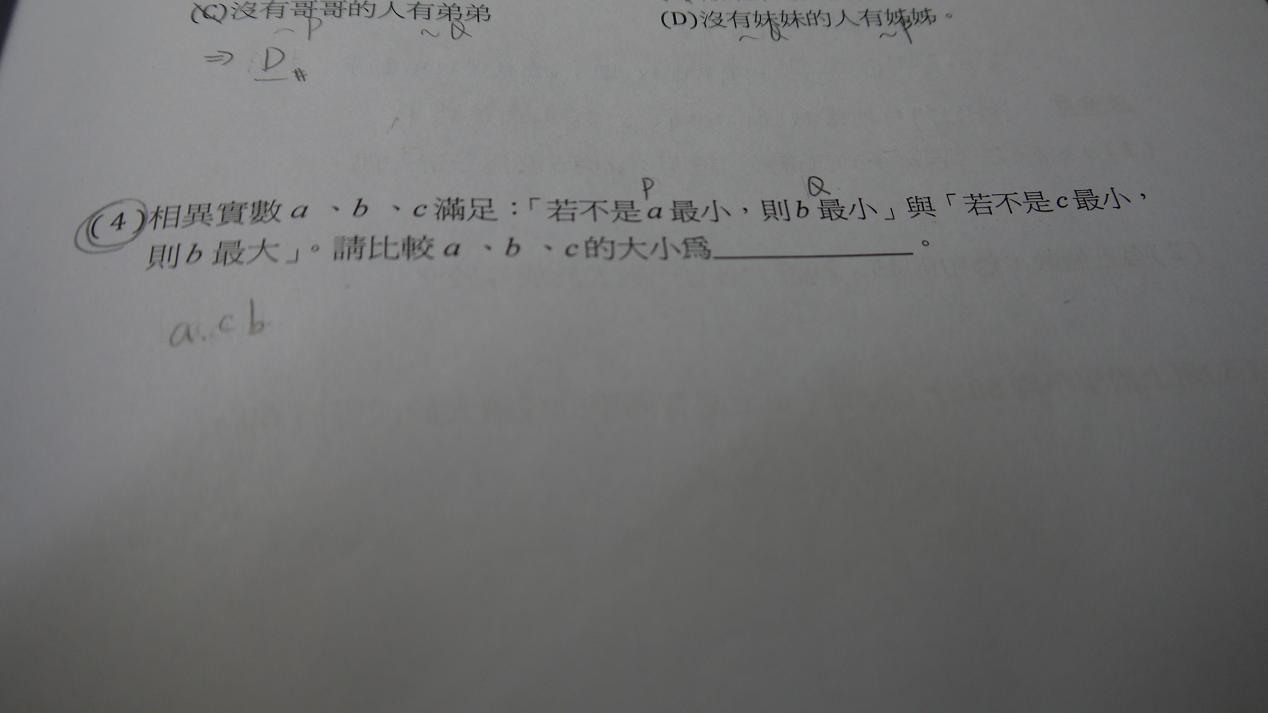 (C)沒有哥哥的人有弟弟 (D)沒有妹妹的人有姊姊。
~P ~Q ~Q ~P
⇒ D #
P Q
(4)相異實數 a 、b 、c 滿足：「若不是 a 最小，則 b 最小」與「若不是 c 最小，
則 b 最大」。請比較 a 、b 、c 的大小為＿＿＿＿＿＿。
a.c b